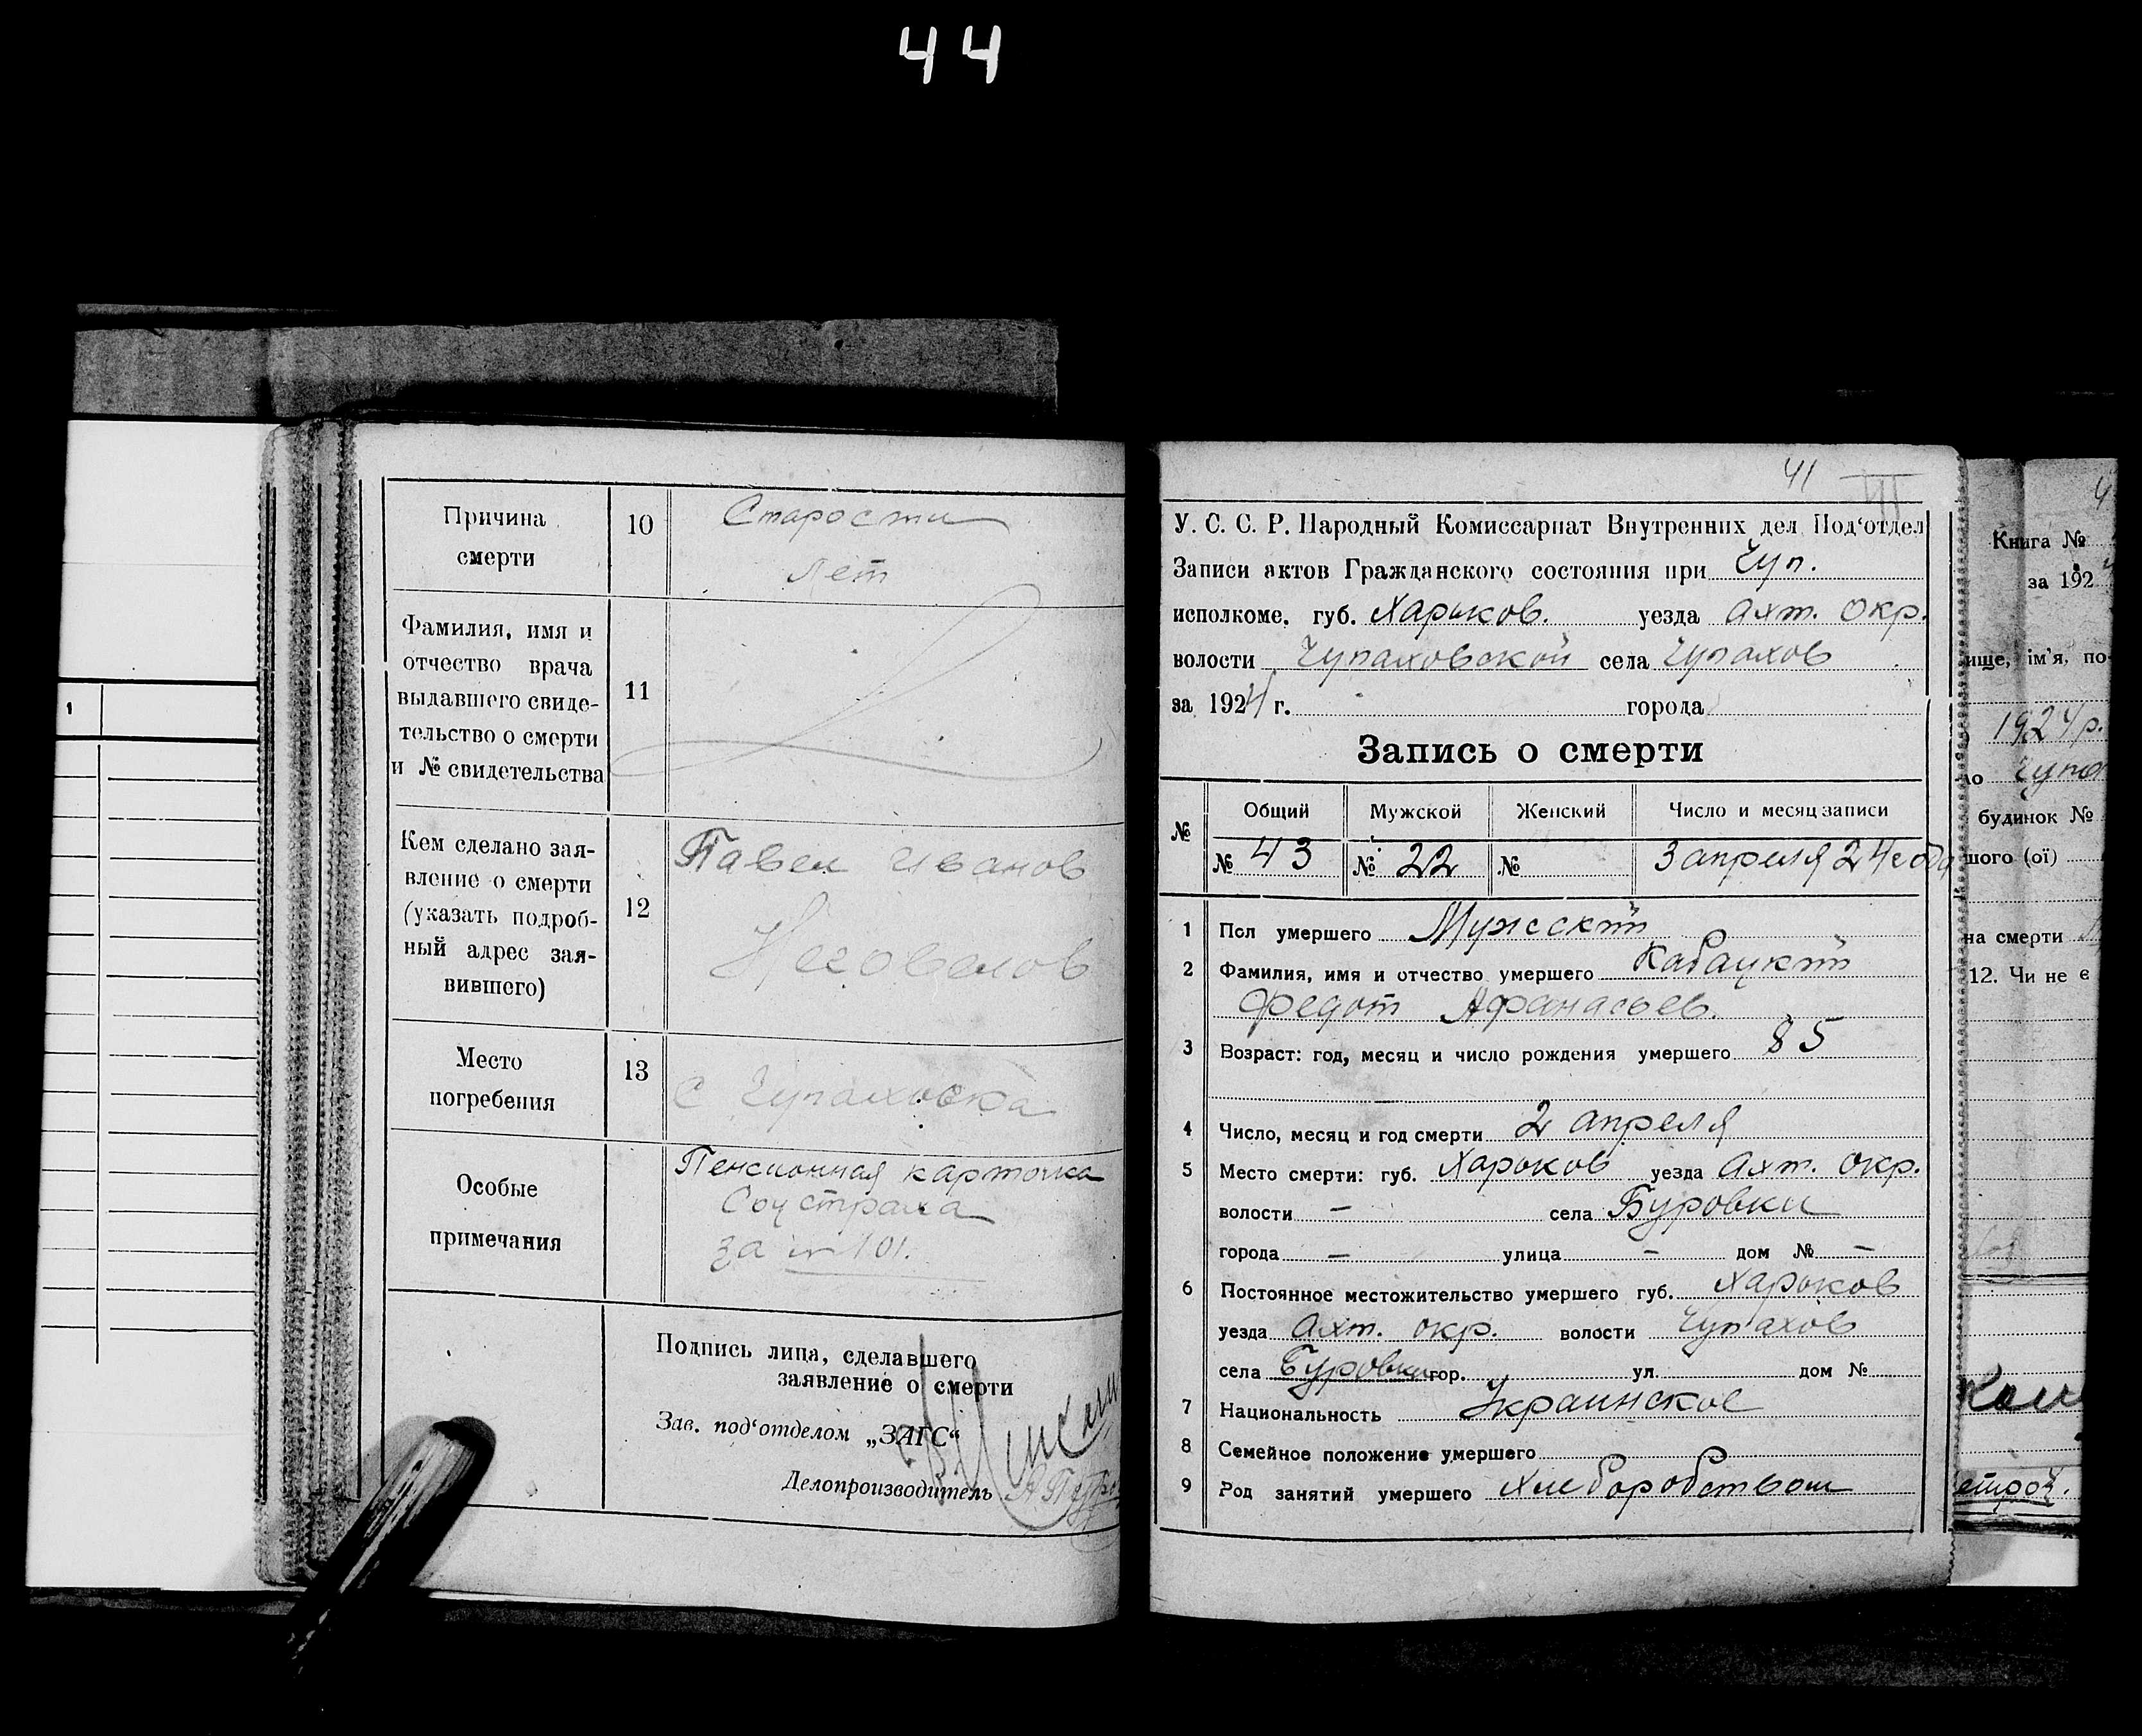 44
1
Причина
смерти
10
Старости
лет
Фамилия, имя и
отчество врача
выдавшего свиде-
тельство о смерти
и № свидетельства
11
Кем сделано зая-
вление о смерти
(указать подроб-
ный адрес зая-
вившего)
12
Павел Иванов
Место
погребения
13
с Чупаховка
Особые
примечания
Пенсионная карточка
Соцстраха
за № 101.
Подпись лица, сделавшего
заявление о смерти
Зав. под‘отделом „ЗАГС“
Делопроизводитель
41
У. С. С. Р. Народный Комиссариат Внутренних дел Под‘отдел
Записи актов Гражданского состояния при Чуп.
исполкоме, губ. Харьков. уезда Ахт. Окр.
волости Чупаховской села Чупахов
за 1924 г. города
Запись о смерти
№ Общий Мужской Женский Число и месяц записи
№ 43 № 22 № 3 апреля 24 года
1 Пол умершего Мужской
2 Фамилия, имя и отчество умершего Кабацкий
Федот Афанасьев.
3 Возраст: год, месяц и число рождения умершего 85
4 Число, месяц и год смерти 2 апреля
5 Место смерти: губ. Харьков уезда Ахт. Окр.
волости – села Буровки
города – улица – дом № –
6 Постоянное местожительство умершего губ. Харьков
уезда Ахт. окр. волости Чупахов
села Буровки гор. ул. дом №
7 Национальность Украинское
8 Семейное положение умершего
9 Род занятий умершего Хлеборобством
Книга №
за 192
ище, ім’я, по
1924 р.
будинок №
шого (ої)
на смерти
12. Чи не є